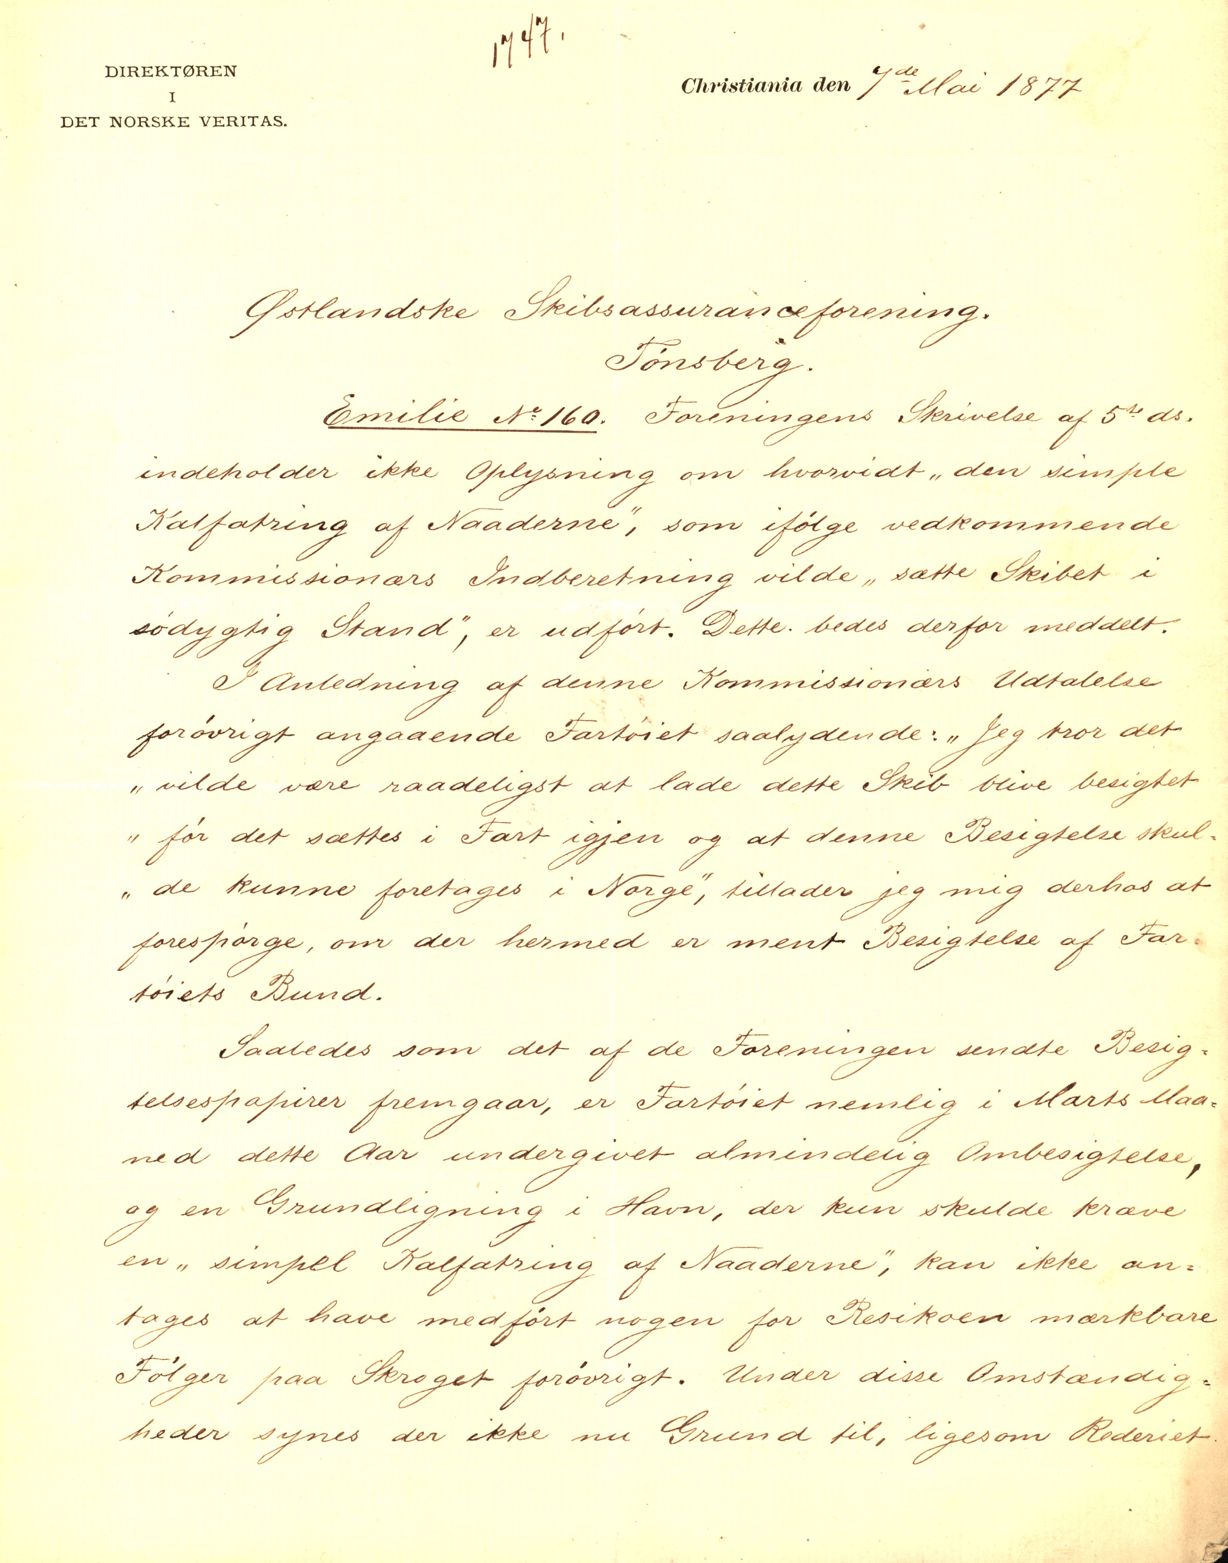 1747.
DIREKTØREN
I
DET NORSKE VERITAS.
Christiania den 7de Mai 1877
Østlandske Skibsassuranceforening.
Tönsberg.
Emilie No 160. Foreningens Skrivelse af 5te ds.
indeholder ikke Oplysning om hvorvidt „den simple
Kalfatring af Naaderne", som ifölge vedkommende
Kommissionærs Indberetning vilde „sætte Skibet i
södygtig Stand", er udfört. Dette bedes derfor meddelt.
I Anledning af denne Kommissionærs Udtalelse
forövrigt angaaende Fartöiet saalydende: „Jeg tror det
„vilde være raadeligst at lade dette Skib blive besigtet
„för det sættes i Fart igjen og at denne Besigtelse skul-
„de kunne foretages i Norge", tillader jeg mig derhos at
forespörge, om der hermed er ment Besigtelse af Far-
töiets Bund.
Saaledes som det af de Foreningen sendte Besig-
telsespapirer fremgaar, er Fartöiet nemlig i Marts Maa-
ned dette Aar undergivet almindelig Ombesigtelse,
og en Grundligning i Havn, der kun skulde kræve
en „simpel Kalfatring af Naaderne", kan ikke an-
tages at have medfört nogen for Resikoen mærkbare
Fölger paa Skroget forövrigt. Under disse Omstændig-
heder synes der ikke nu Grund til, ligesom Rederiet